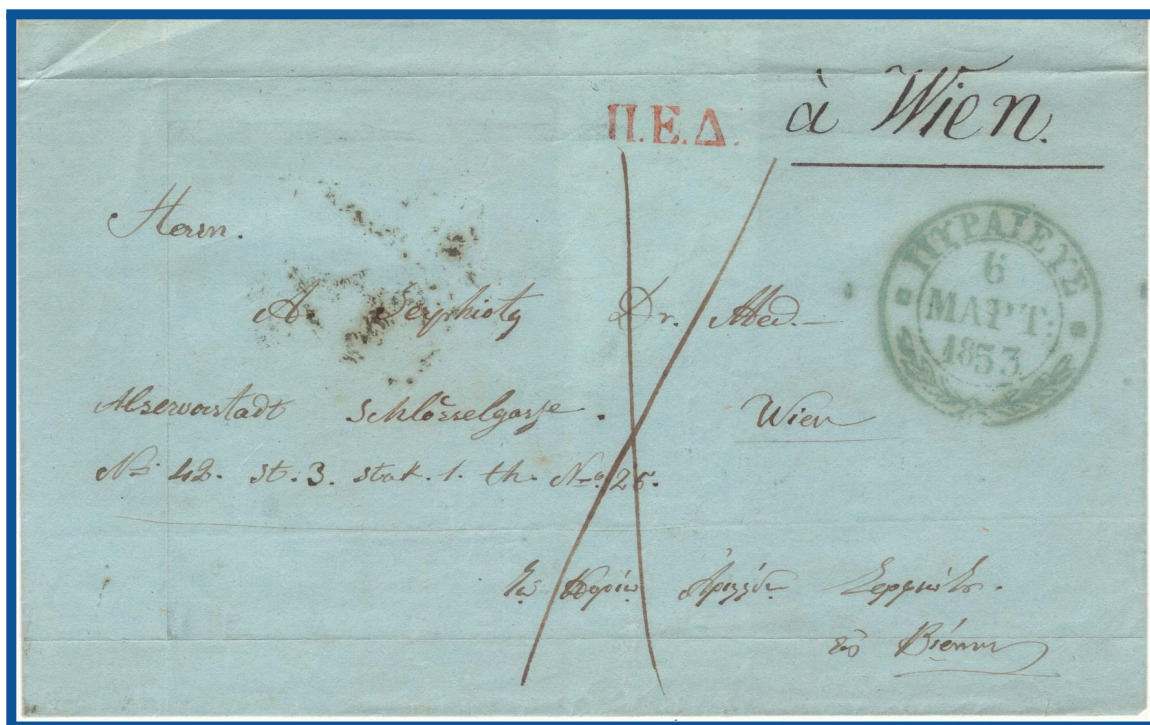 Π.Ε.Δ. à Wien.
Herrn.
ΠΥΡΑΙΕΥΣ
6
ΜΑΡΤ:
1853
A. Seryhioty Dr. Med.
Alservorstadt Schlösselgasse. Wien
No 42. St. 3. stok. 1. th. No 25.
Τῷ Κυρίῳ Σερφιώτῃ.
εἰς Βιέννην